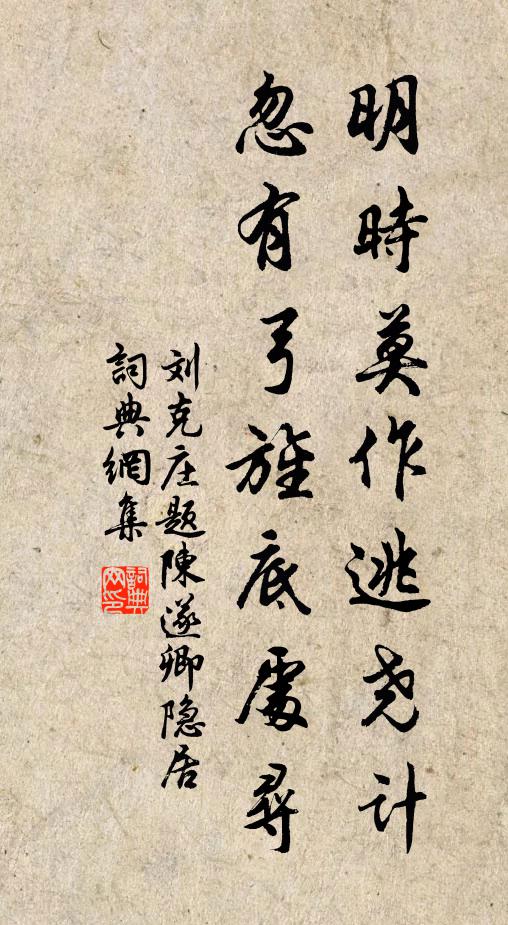 明時莫作逃尧计
忽有弓旌底處尋
刘克庄题陳遂卿隐居
詞典網集
詞典网印